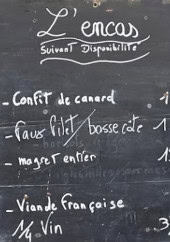 L'encas
Suivant Disponibilité
- Confit de canard 1
- Faux Filet / bosse cote 1
- magret entier 1
- Viande Française
1/4 Vin 3,